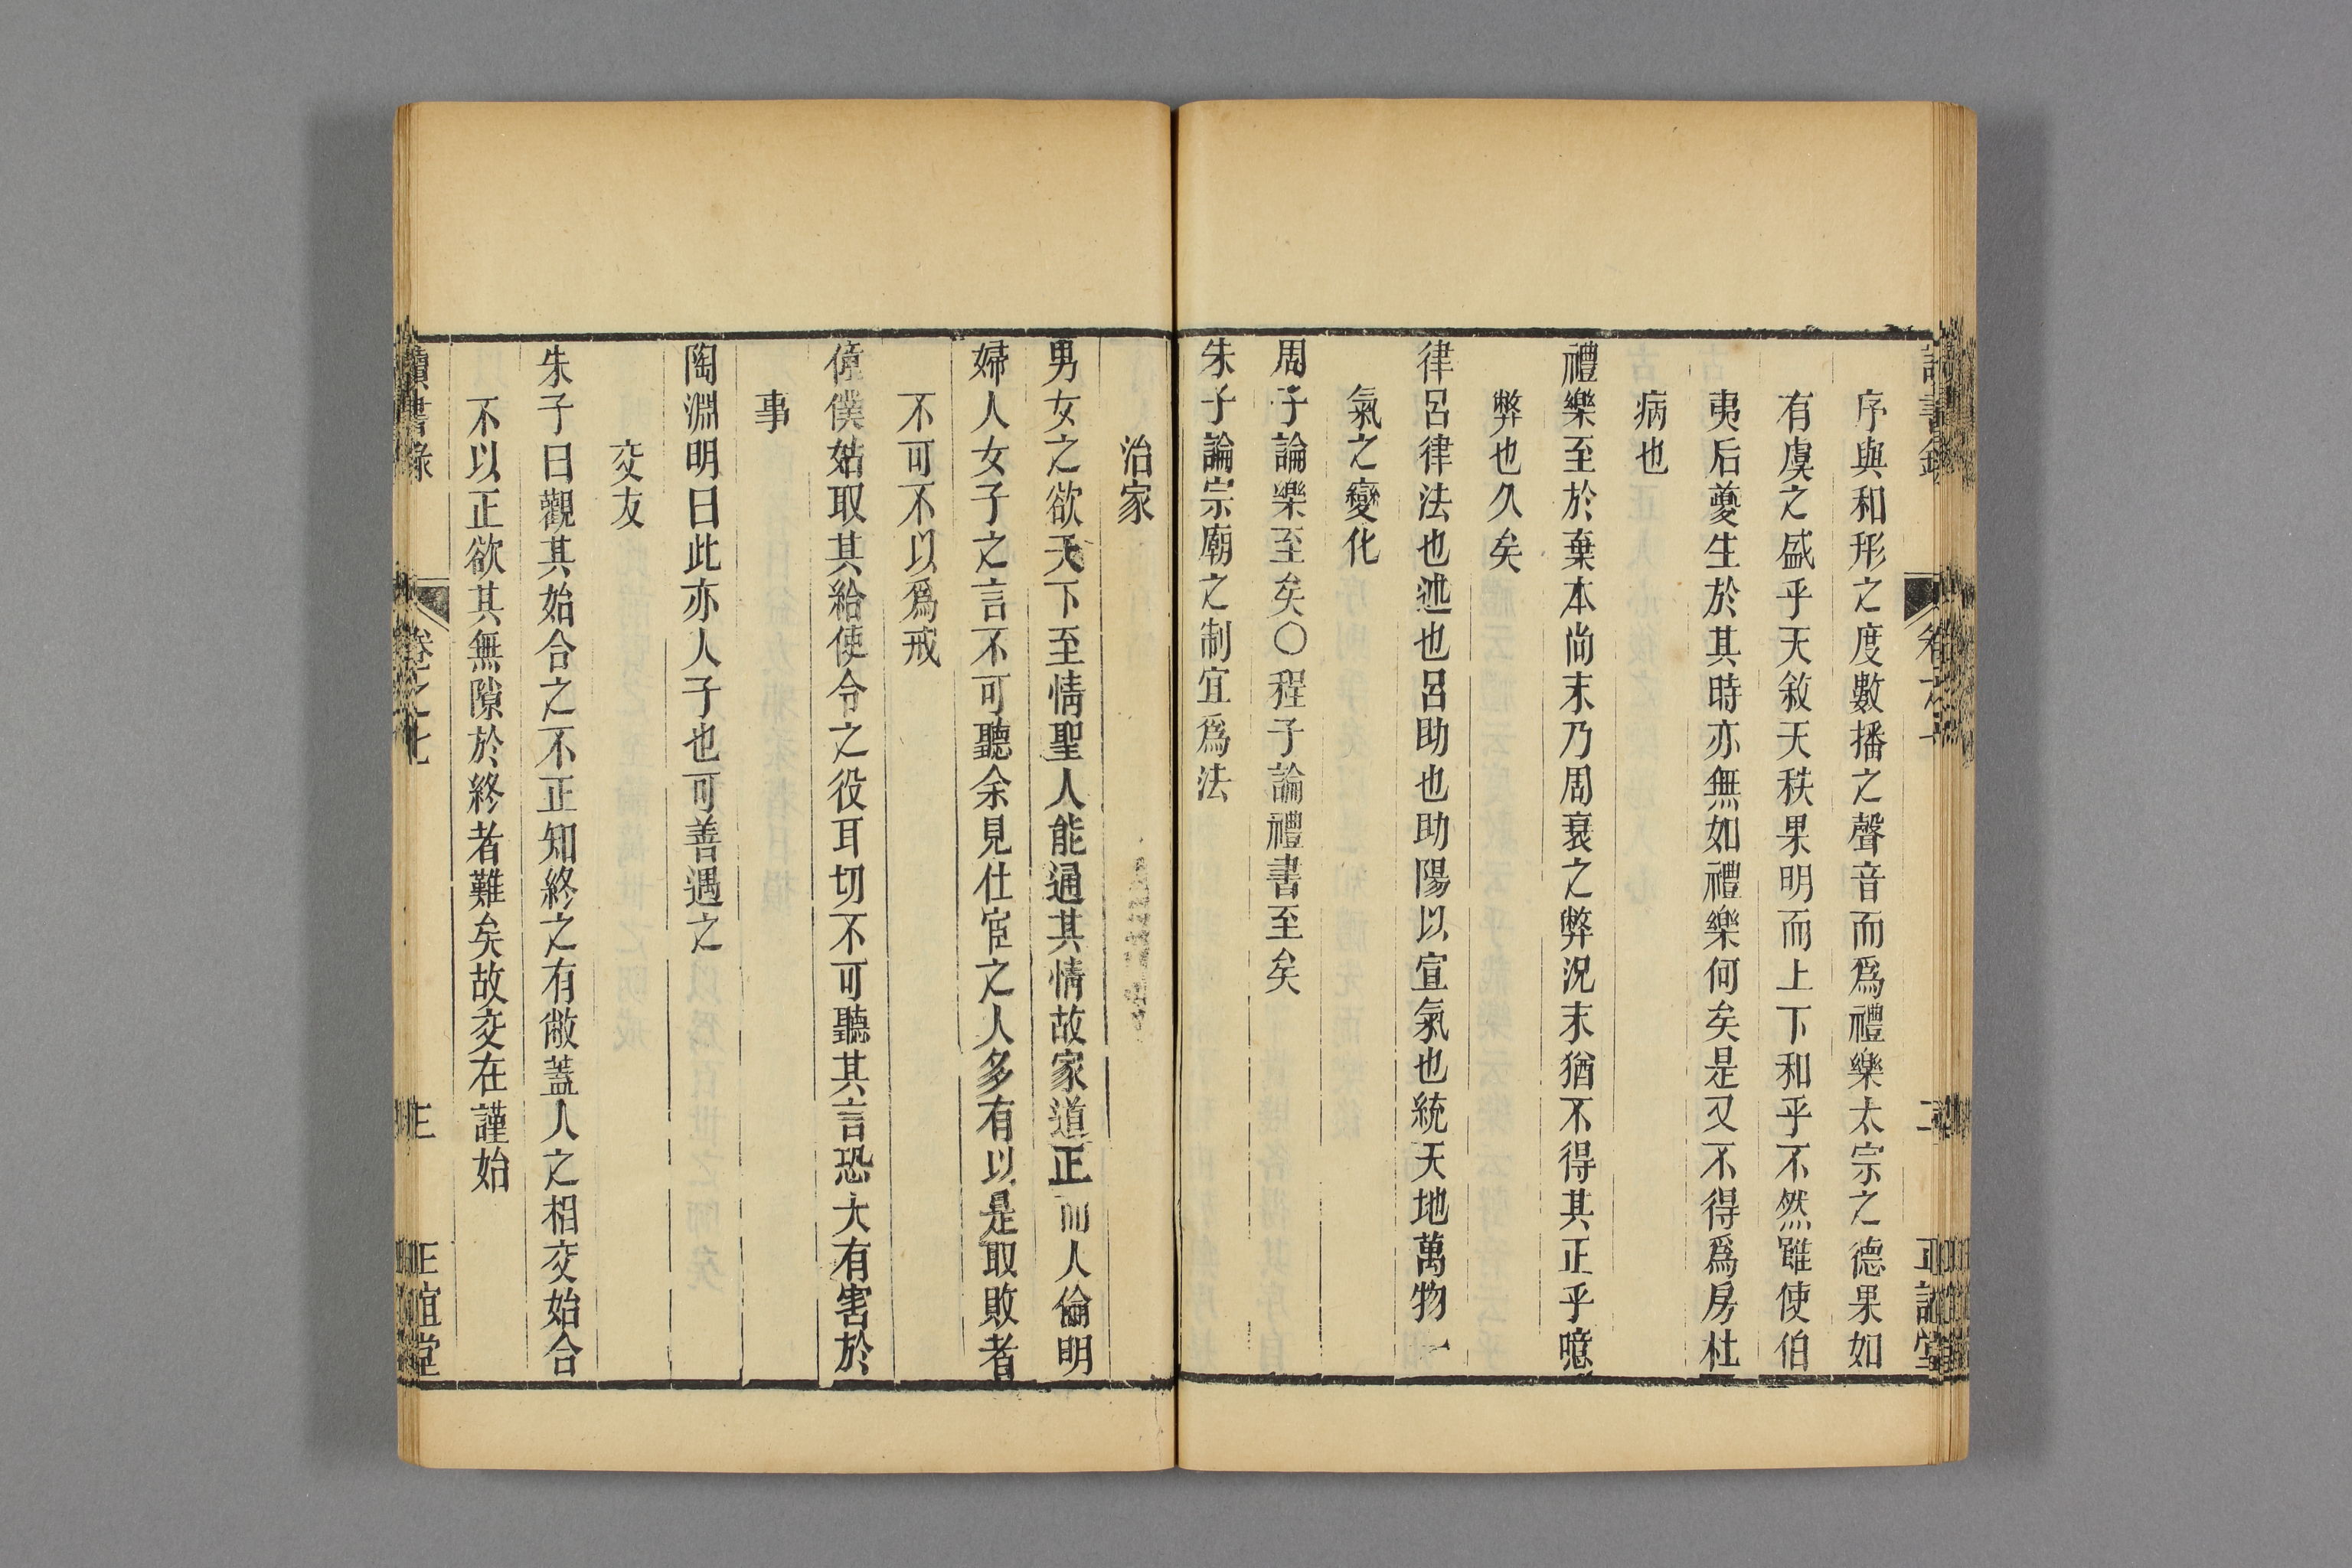 序與和形之度數播之聲音而爲禮樂太宗之德果如
有虞之盛乎天敘天秩果明而上下和乎不然雖使伯
夷后夔生於其時亦無如禮樂何矣是又不得爲房杜
病也
禮樂至於棄本尚末乃周衰之弊況末猶不得其正乎噫
弊也久矣
律呂律法也述也呂助也助陽以宣氣也統天地萬物一
氣之變化
周子論樂至矣〇程子論禮書至矣
朱子論宗廟之制宜爲法
治家
男女之欲天下至情聖人能通其情故家道正而人倫明
婦人女子之言不可聽余見仕宦之人多有以是取敗者
不可不以爲戒
僮僕姑取其給使令之役耳切不可聽其言恐大有害於
事
陶淵明曰此亦人子也可善遇之
交友
朱子曰觀其始合之不正知終之有敝蓋人之相交始合
不以正欲其無隙於終者難矣故交在謹始
讀書錄 卷之七 三 正誼堂